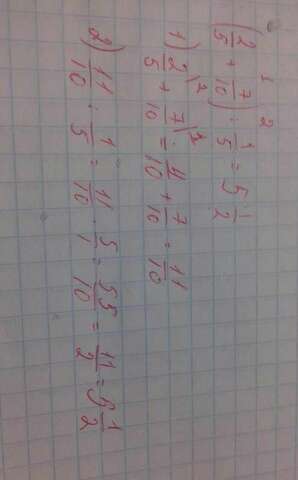 1 2
(2/5 + 7/10) : 1/5 = 5 1/2
1) 2/5 \2 + 7/10 \1 = 4/10 + 7/10 = 11/10
2) 11/10 : 1/5 = 11/10 · 5/1 = 55/10 = 11/2 = 5 1/2